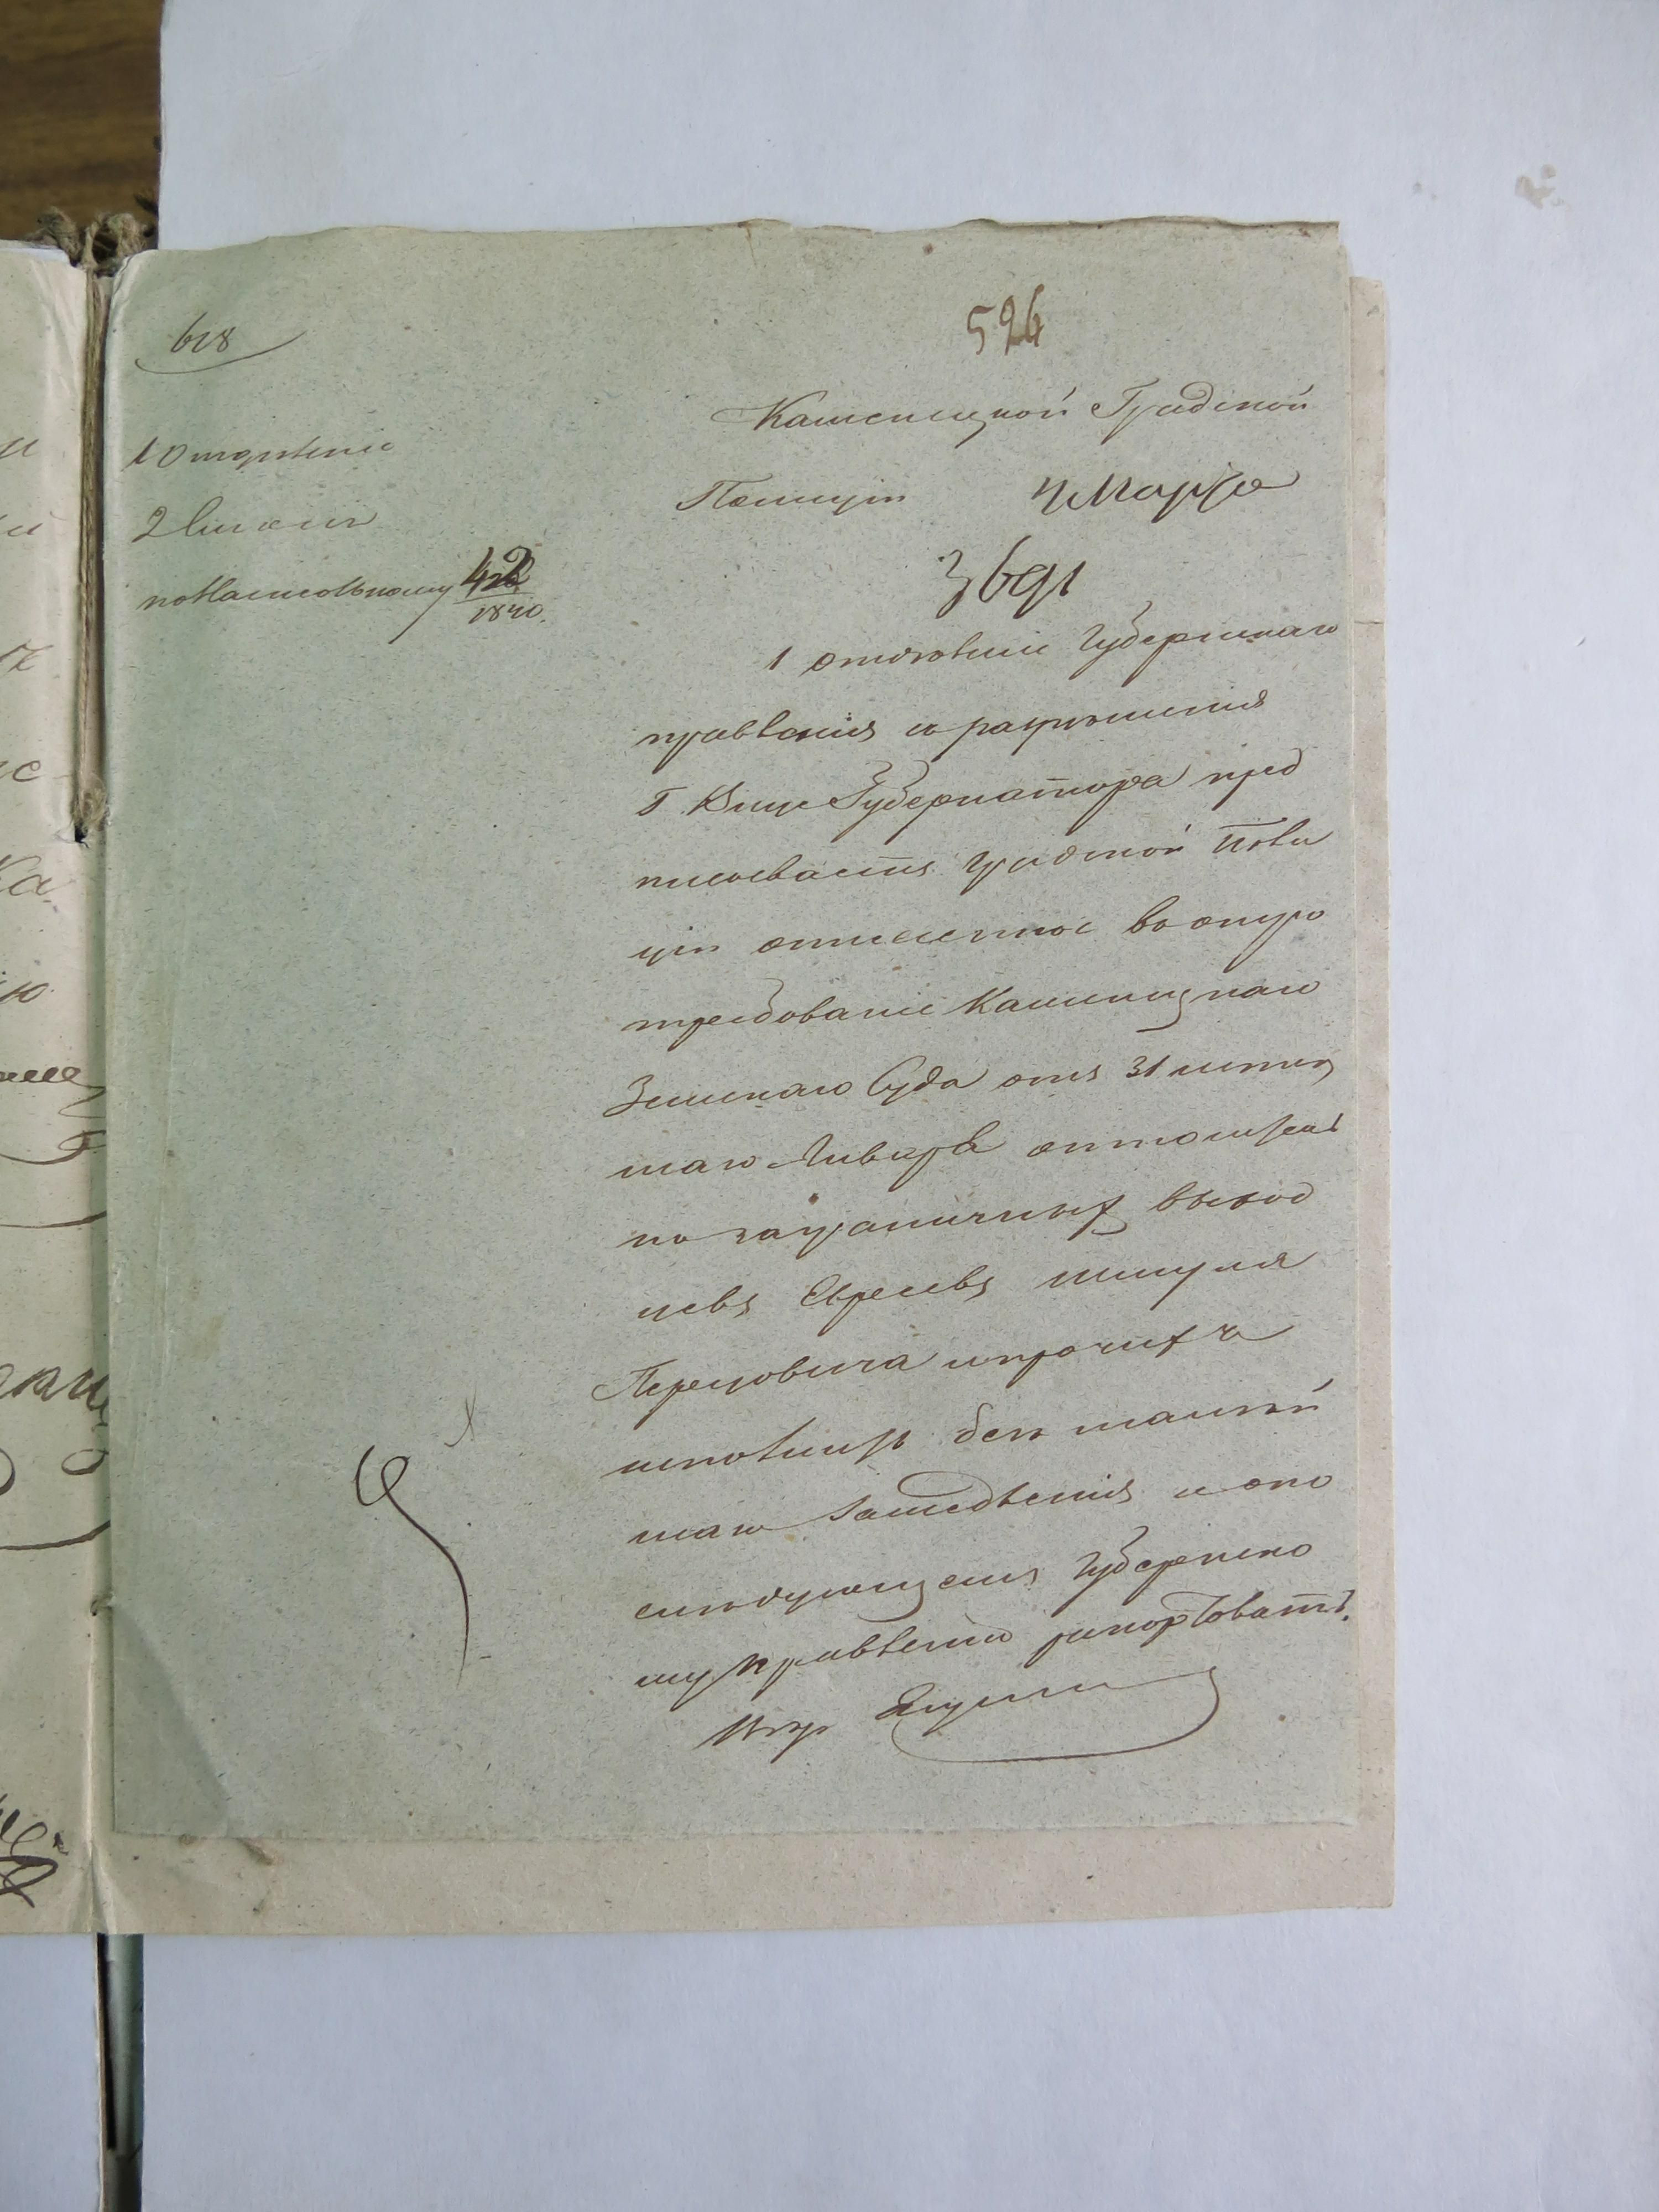 618
524
1 Отделение
2 Столъ
по Настольному 42
1840.
Каменецкой Градской
Полиціи 4 Марта
3691
1 отделение Губернскаго
правления съ разрешения
Г. Вице Губернатора пред
писываетъ градской Поли
ціи отписанное во оную
требование Каменецкаго
Земскаго Суда отъ 31 минув
шаго Генваря
по заграничныхъ выход
цевъ Евреевъ Шмуля
Перцовича и прочихъ
исполнить безъ малей
шаго замедления и о по
следующемъ Губернско
му правлению рапортовать.